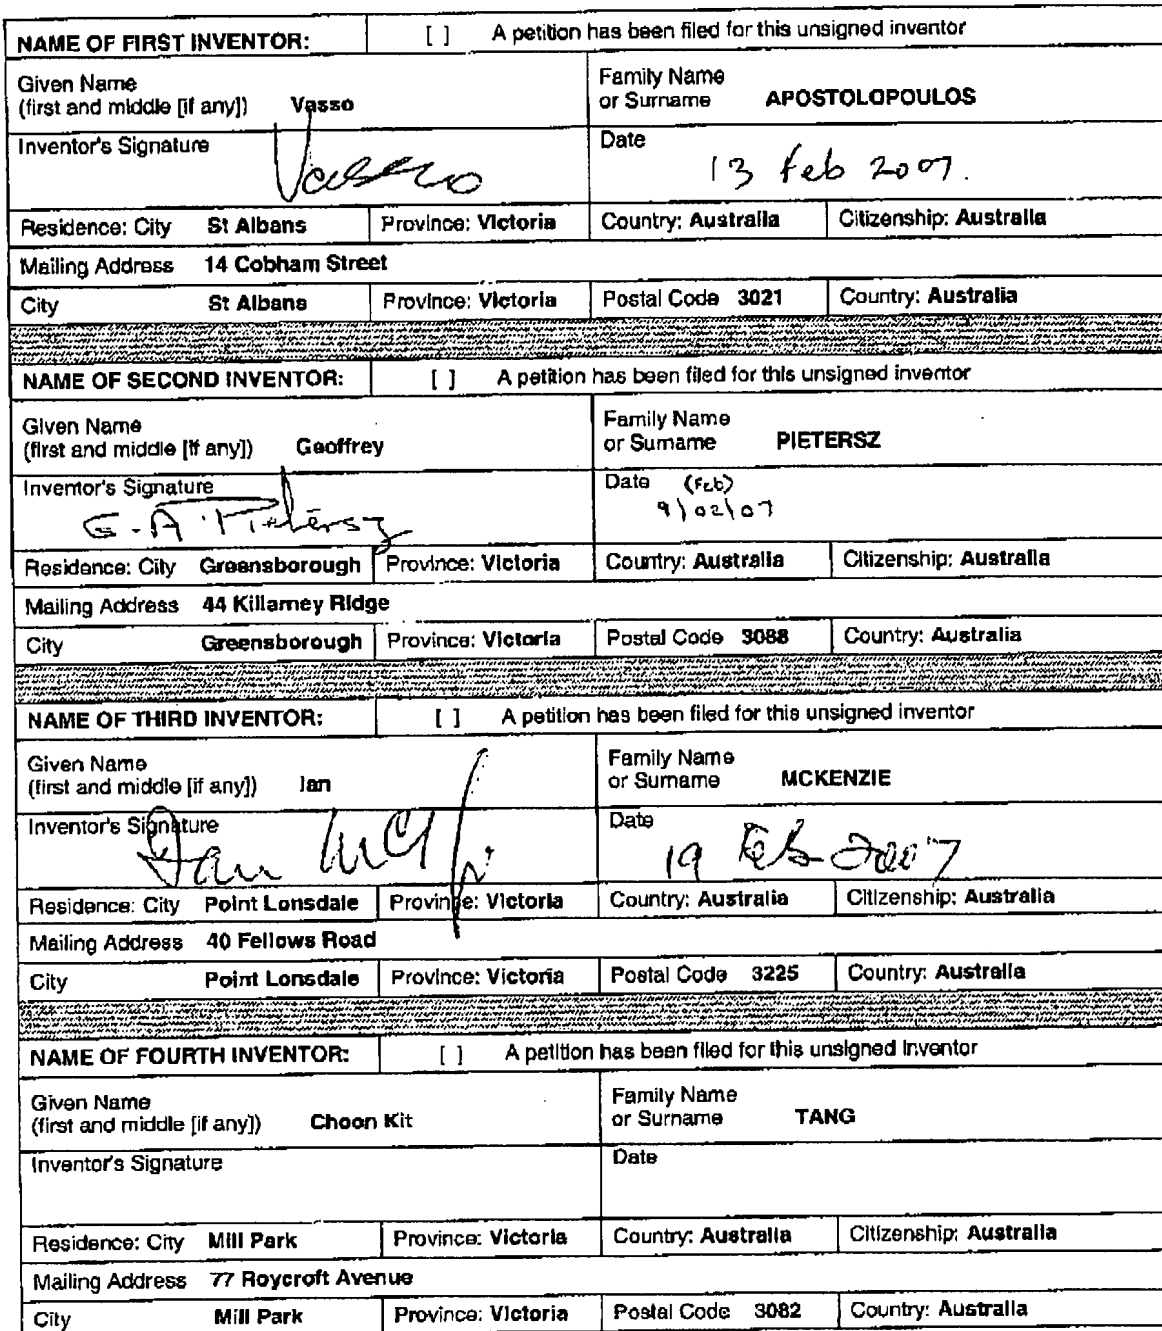 NAME OF FIRST INVENTOR: [ ] A petition has been filed for this unsigned inventor
Given Name Family Name
(first and middle [if any]) Vasso or Surname APOSTOLOPOULOS
Inventor's Signature Date
Vasso 13 Feb 2007.
Residence: City St Albans Province: Victoria Country: Australia Citizenship: Australia
Mailing Address 14 Cobham Street
City St Albans Province: Victoria Postal Code 3021 Country: Australia
NAME OF SECOND INVENTOR: [ ] A petition has been filed for this unsigned inventor
Given Name Family Name
(first and middle [if any]) Geoffrey or Surname PIETERSZ
Inventor's Signature Date (Feb)
G. A. Pietersz 9/02/07
Residence: City Greensborough Province: Victoria Country: Australia Citizenship: Australia
Mailing Address 44 Killarney Ridge
City Greensborough Province: Victoria Postal Code 3088 Country: Australia
NAME OF THIRD INVENTOR: [ ] A petition has been filed for this unsigned inventor
Given Name Family Name
(first and middle [if any]) Ian or Surname MCKENZIE
Inventor's Signature Date
Ian 19 Feb 2007
Residence: City Point Lonsdale Province: Victoria Country: Australia Citizenship: Australia
Mailing Address 40 Fellows Road
City Point Lonsdale Province: Victoria Postal Code 3225 Country: Australia
NAME OF FOURTH INVENTOR: [ ] A petition has been filed for this unsigned inventor
Given Name Family Name
(first and middle [if any]) Choon Kit or Surname TANG
Inventor's Signature Date
Residence: City Mill Park Province: Victoria Country: Australia Citizenship: Australia
Mailing Address 77 Roycroft Avenue
City Mill Park Province: Victoria Postal Code 3082 Country: Australia